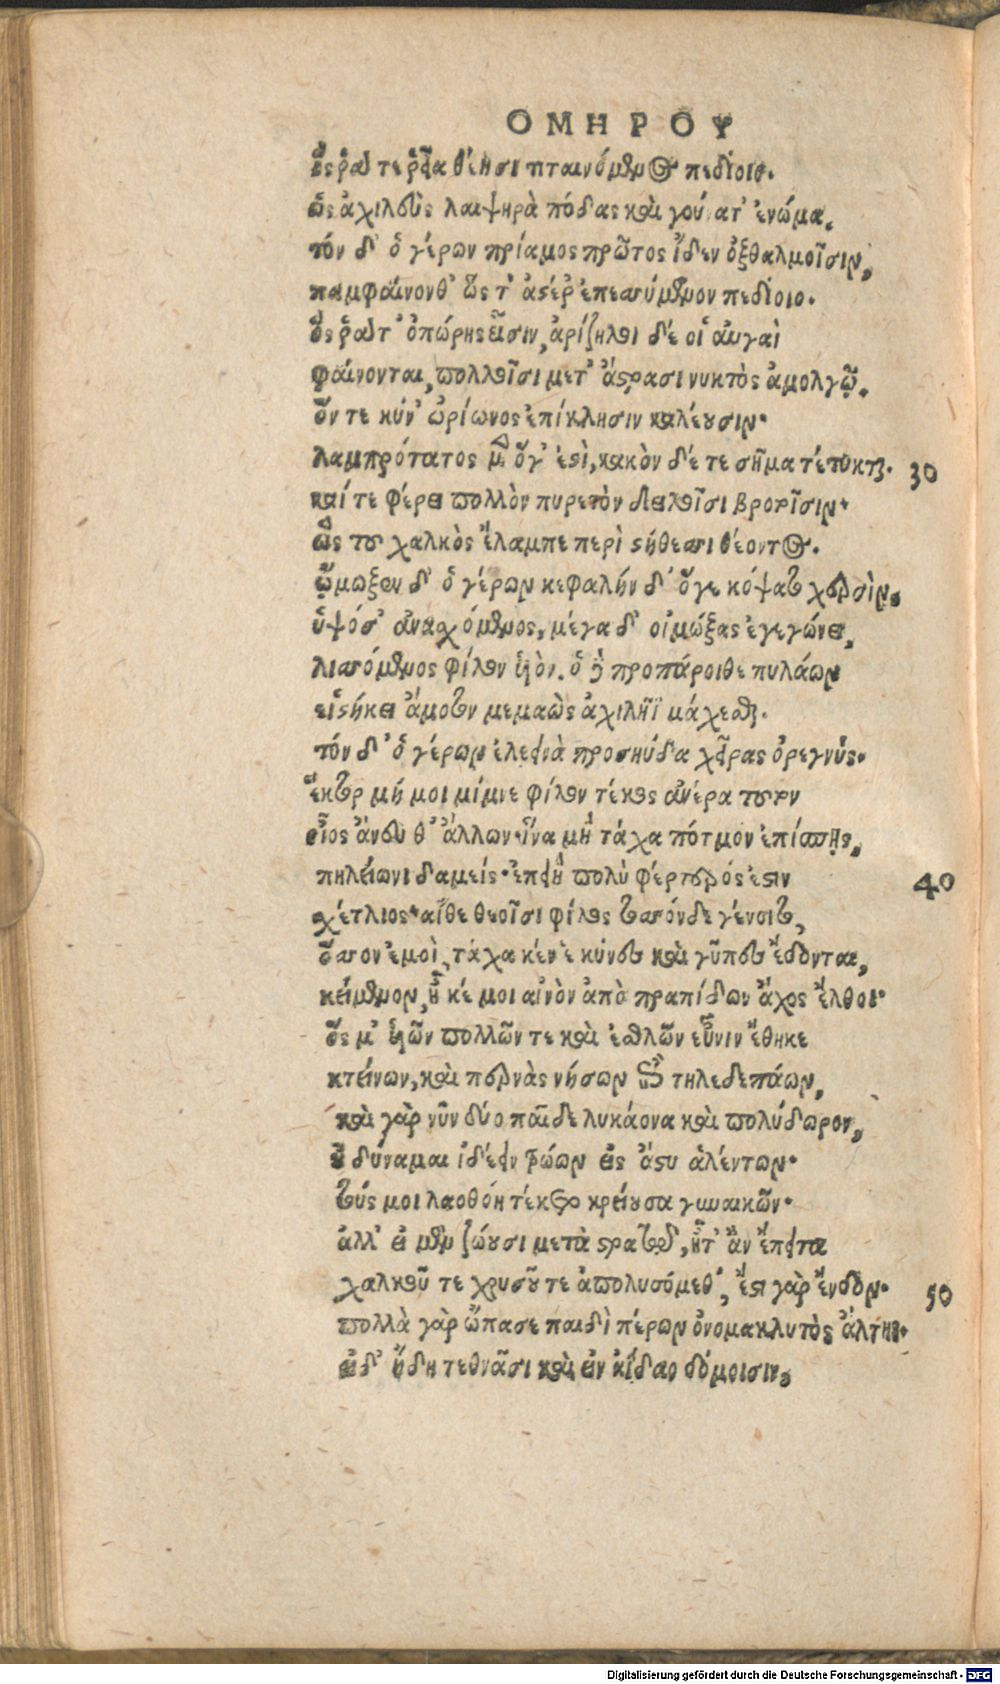 ΟΜΗΡΟΥ
ὅς ῥά τε ῥεῖα θέησι τιταινόμενος πεδίοιο.
ὣς ἀχιλεὺς λαιψηρὰ πόδας καὶ γούνατ' ἐνώμα.
τόν δ' ὁ γέρων πρίαμος πρῶτος ἴδεν ὀφθαλμοῖσιν,
παμφαίνονθ' ὥς τ' ἀστέρ' ἐπεσσύμενον πεδίοιο.
ὅς ῥά τ' ὀπώρης εἶσιν, ἀρίζηλοι δέ οἱ αὐγαὶ
φαίνονται, πολλοῖσι μετ' ἄστρασι νυκτὸς ἀμολγῷ.
ὅν τε κύν' ὠρίωνος ἐπίκλησιν καλέουσιν·
λαμπρότατος μὲν ὅγ' ἐστὶ, κακὸν δέ τε σῆμα τέτυκται. 30
καί τε φέρει πολλὸν πυρετὸν δειλοῖσι βροτοῖσιν·
ὣς του χαλκὸς ἔλαμπε περὶ στήθεσσι θέοντος.
ᾤμωξεν δ' ὁ γέρων κεφαλήν δ' ὅγε κόψατο χερσὶν,
ὑψόσ' ἀνασχόμενος, μέγα δ' οἰμώξας ἐγεγώνει,
λισσόμενος φίλον υἱὸν. ὁ δὲ προπάροιθε πυλάων
εἱστήκει ἄμοτον μεμαὼς ἀχιλῆϊ μάχεσθαι.
τόν δ' ὁ γέρων ἐλεεινὰ προσηύδα χεῖρας ὀρεγνύς·
ἕκτορ μή μοι μίμνε φίλον τέκος ἀνέρα τοῦτον
οἶος ἄνευθ' ἄλλων· ἵνα μὴ τάχα πότμον ἐπίσπῃς,
πηλείωνι δαμείς· ἐπειὴ πολὺ φέρτερός ἐστιν 40
χέτλιος· αἴθε θεοῖσι φίλος τοσσόνδε γένοιτο,
ὅσσον ἐμοὶ, τάχα κέν ἑ κύνες καὶ γῦπες ἔδονται,
κείμενον, ἦ κέ μοι αἰνὸν ἀπὸ πραπίδων ἄχος ἔλθοι·
ὅς μ' υἱῶν πολλῶν τε καὶ ἐσθλῶν εὖνιν ἔθηκε
κτείνων, καὶ περνὰς νήσων ἔπι τηλεδεπάων,
καὶ γὰρ νῦν δύο παῖδε λυκάονα καὶ πολύδωρον,
οὐ δύναμαι ἰδέειν τρώων εἰς ἄστυ ἀλέντων·
τούς μοι λαοθόη τέκετο κρείουσα γυναικῶν·
ἀλλ' εἰ μὲν ζώουσι μετὰ στρατῷ, ἦτ' ἂν ἔπειτα
χαλκοῦ τε χρυσοῦ τε ἀπολυσόμεθ', ἔστι γὰρ ἔνδον· 50
πολλὰ γὰρ ὤπασε παιδὶ γέρων ὀνομακλυτὸς ἄλτης·
εἰ δ' ἤδη τεθνᾶσι καὶ εἰν ἀΐδαο δόμοισιν,
Digitalisierung gefördert durch die Deutsche Forschungsgemeinschaft - DFG